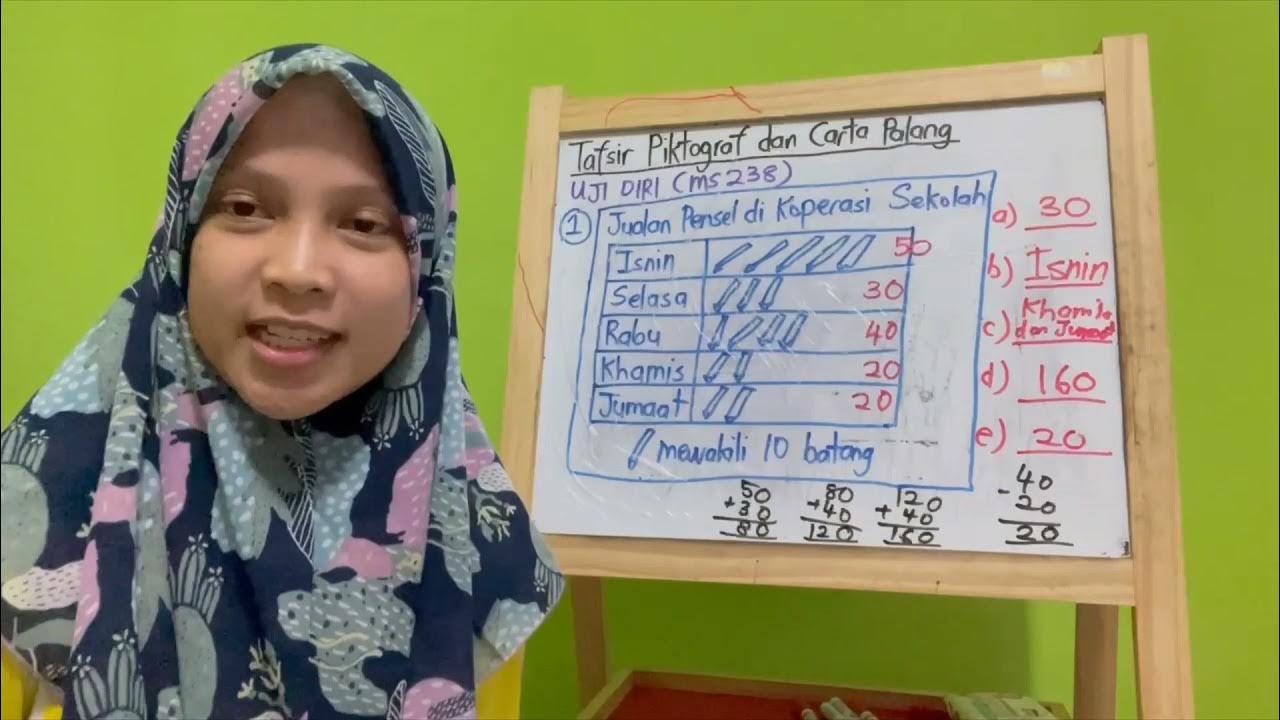 Tafsir Piktograf dan Carta Palang
UJI DIRI (ms 238)
1 Jualan Pensel di Koperasi Sekolah
Isnin 50
Selasa 30
Rabu 40
Khamis 20
Jumaat 20
mewakili 10 batang
a) 30
b) Isnin
c) Khamis
dan Jumaat
d) 160
e) 20
50
+ 30
80
80
+ 40
120
120
+ 40
160
40
- 20
20